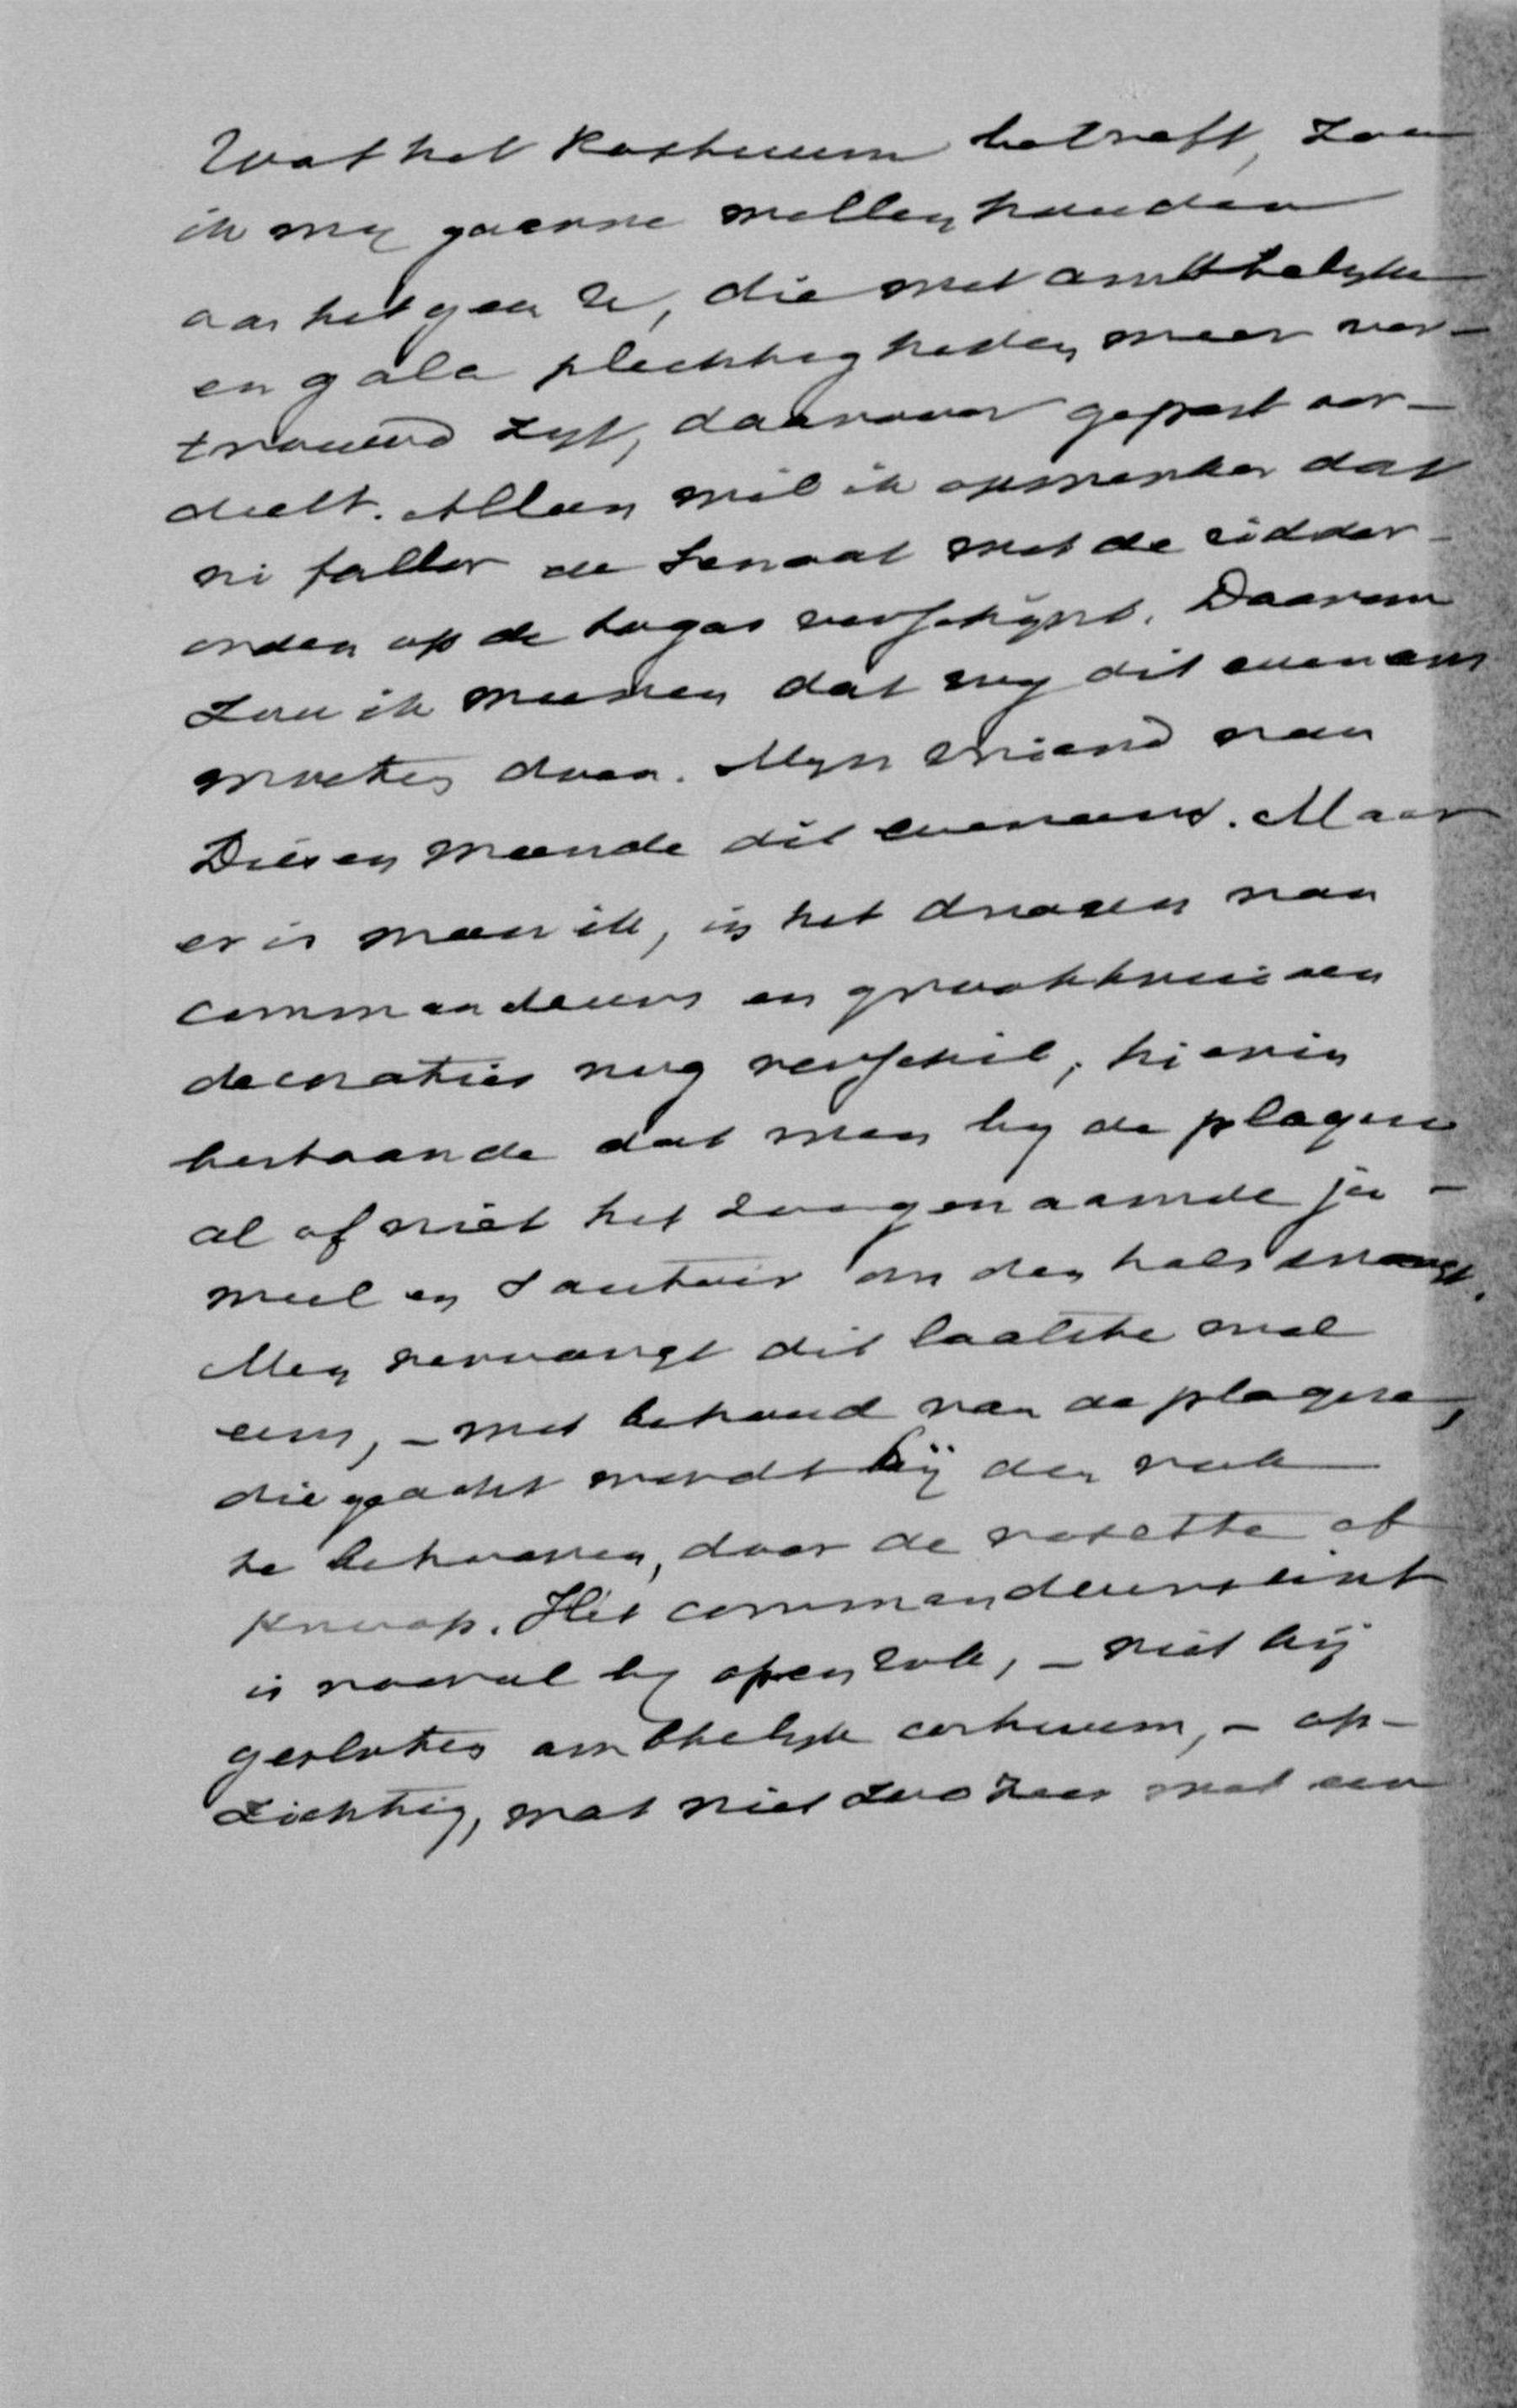 Wat het kostuum betreft, zou
ik my gaarne willen houden
aan hetgeen U, die met ambtelyke
en gala plechtigheden meer ver-
trouwd zyt, daarvoor gepast oor-
deelt. Alleen wil ik opmerken dat
ni fallor de Senaat met de ridder-
orden op de togas verschynt. Daarom
zou ik meenen dat wy dit eveneens
moeten doen. Myn vriend van
Diesen meende dit eveneens. Maar
er is meen ik, in het dragen van
commandeurs en grootkruisen
decoraties nog verschil, hierin
bestaande dat men by de plaque
al of niet het zoogenaamde ju-
weel en sautoir om den hals draagt.
Men vervangt dit laatste wel
eens, - met behoud van de plaque,
die geacht wordt bij den rok
te behooren, door de rosette of
knoop. Het commandeurslint
is vooral by open rok, - niet bij
gesloten ambtelyk costuum, - op-
zichtig, wat niet zoozeer met een